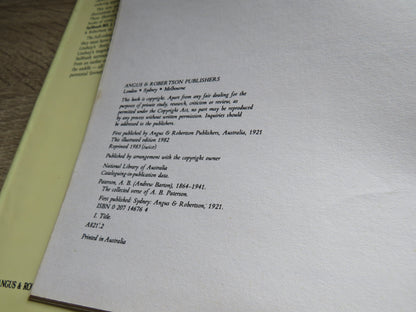 ANGUS & ROBERTSON PUBLISHERS
London • Sydney • Melbourne
This book is copyright. Apart from any fair dealing for the
purposes of private study, research, criticism or review, as
permitted under the Copyright Act, no part may be reproduced
by any process without written permission. Inquiries should
be addressed to the publishers.
First published by Angus & Robertson Publishers, Australia, 1921
This illustrated edition 1982
Reprinted 1983 (twice)
Published by arrangement with the copyright owner
National Library of Australia
Cataloguing-in-publication data.
Paterson, A. B. (Andrew Barton), 1864-1941.
The collected verse of A. B. Paterson.
First published: Sydney: Angus & Robertson, 1921.
ISBN 0 207 14676 4
I. Title.
A821'.2
Printed in Australia
ANGUS & RO